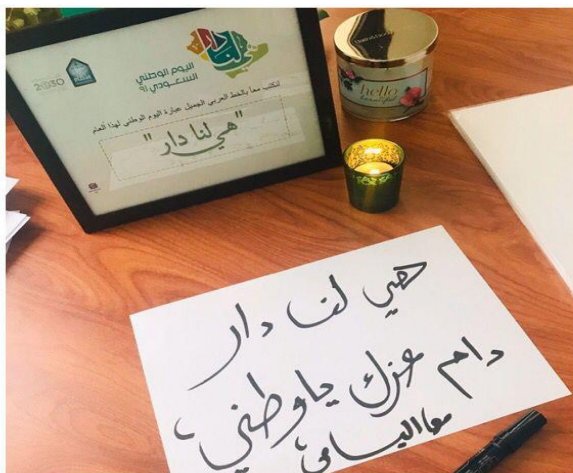 2030
هي لنا دار
اليوم الوطني
السعودي 91
لنكتب معاً بالخط العربي الجميل عبارة اليوم الوطني لهذا العام
"هي لنا دار"
hello
هي لنا دار
دام عزك ياوطني،